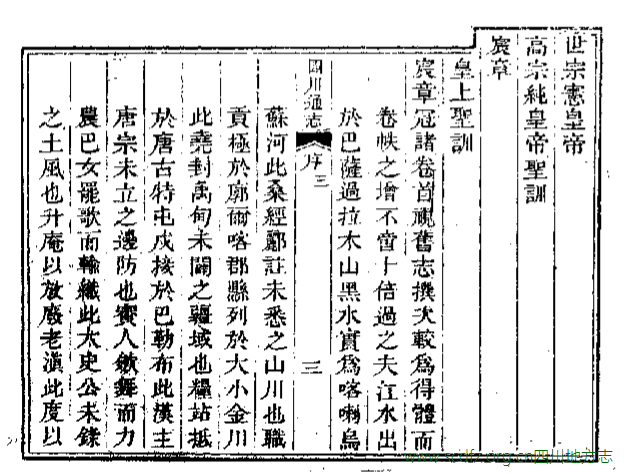 世宗憲皇帝
高宗純皇帝聖訓
宸章
皇上聖訓
宸章冠諸卷首視舊志撰次較爲得體而
卷帙之增不啻十倍過之夫江水出
於巴薩過拉木山黑水實爲喀喇烏
四川通志
序
三
三
蘇河此桑經酈註未悉之山川也職
貢極於廓爾喀郡縣列於大小金川
此堯封禹甸未闢之疆域也糧站抵
於唐古特屯戍接於巴勒布此漢主
唐宗未立之邊防也賨人斂舞而力
農巴女罷歌而輸織此太史公未錄
之土風也升庵以放廢老滇此度以
四川地方志